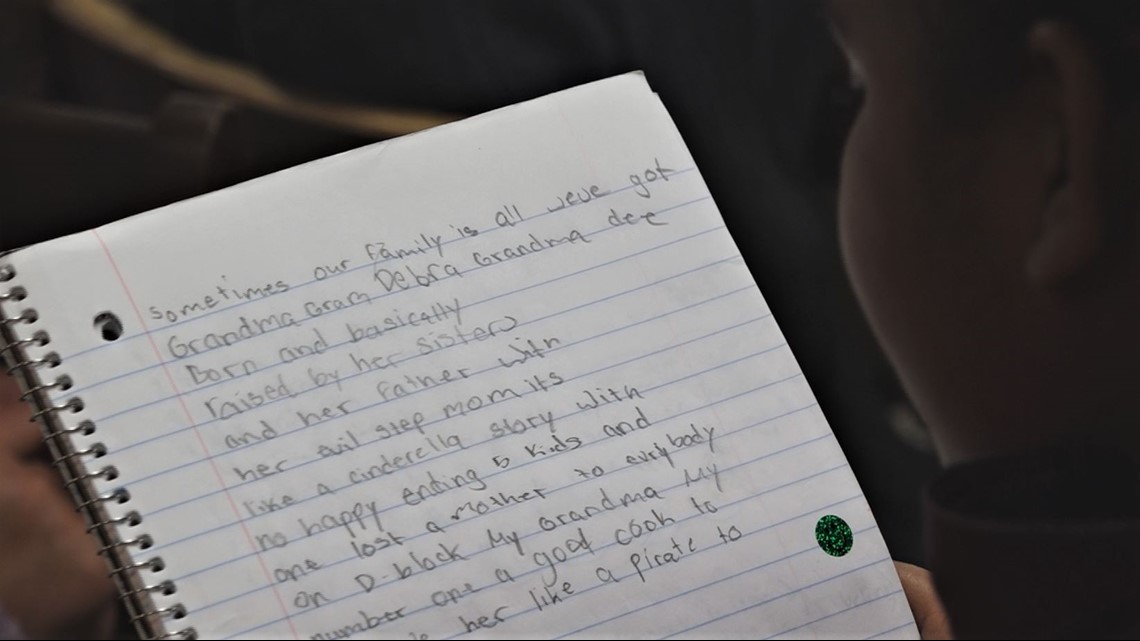 sometimes our family is all weve got
Grandma Gram Debra Grandma dee
Born and basically
raised by her sisters
and her Father with
her evil step mom its
like a cinderella story with
no happy ending 5 kids and
one lost a mother to everybody
on D-block My Grandma My
number one a good cook to
her like a pirate to